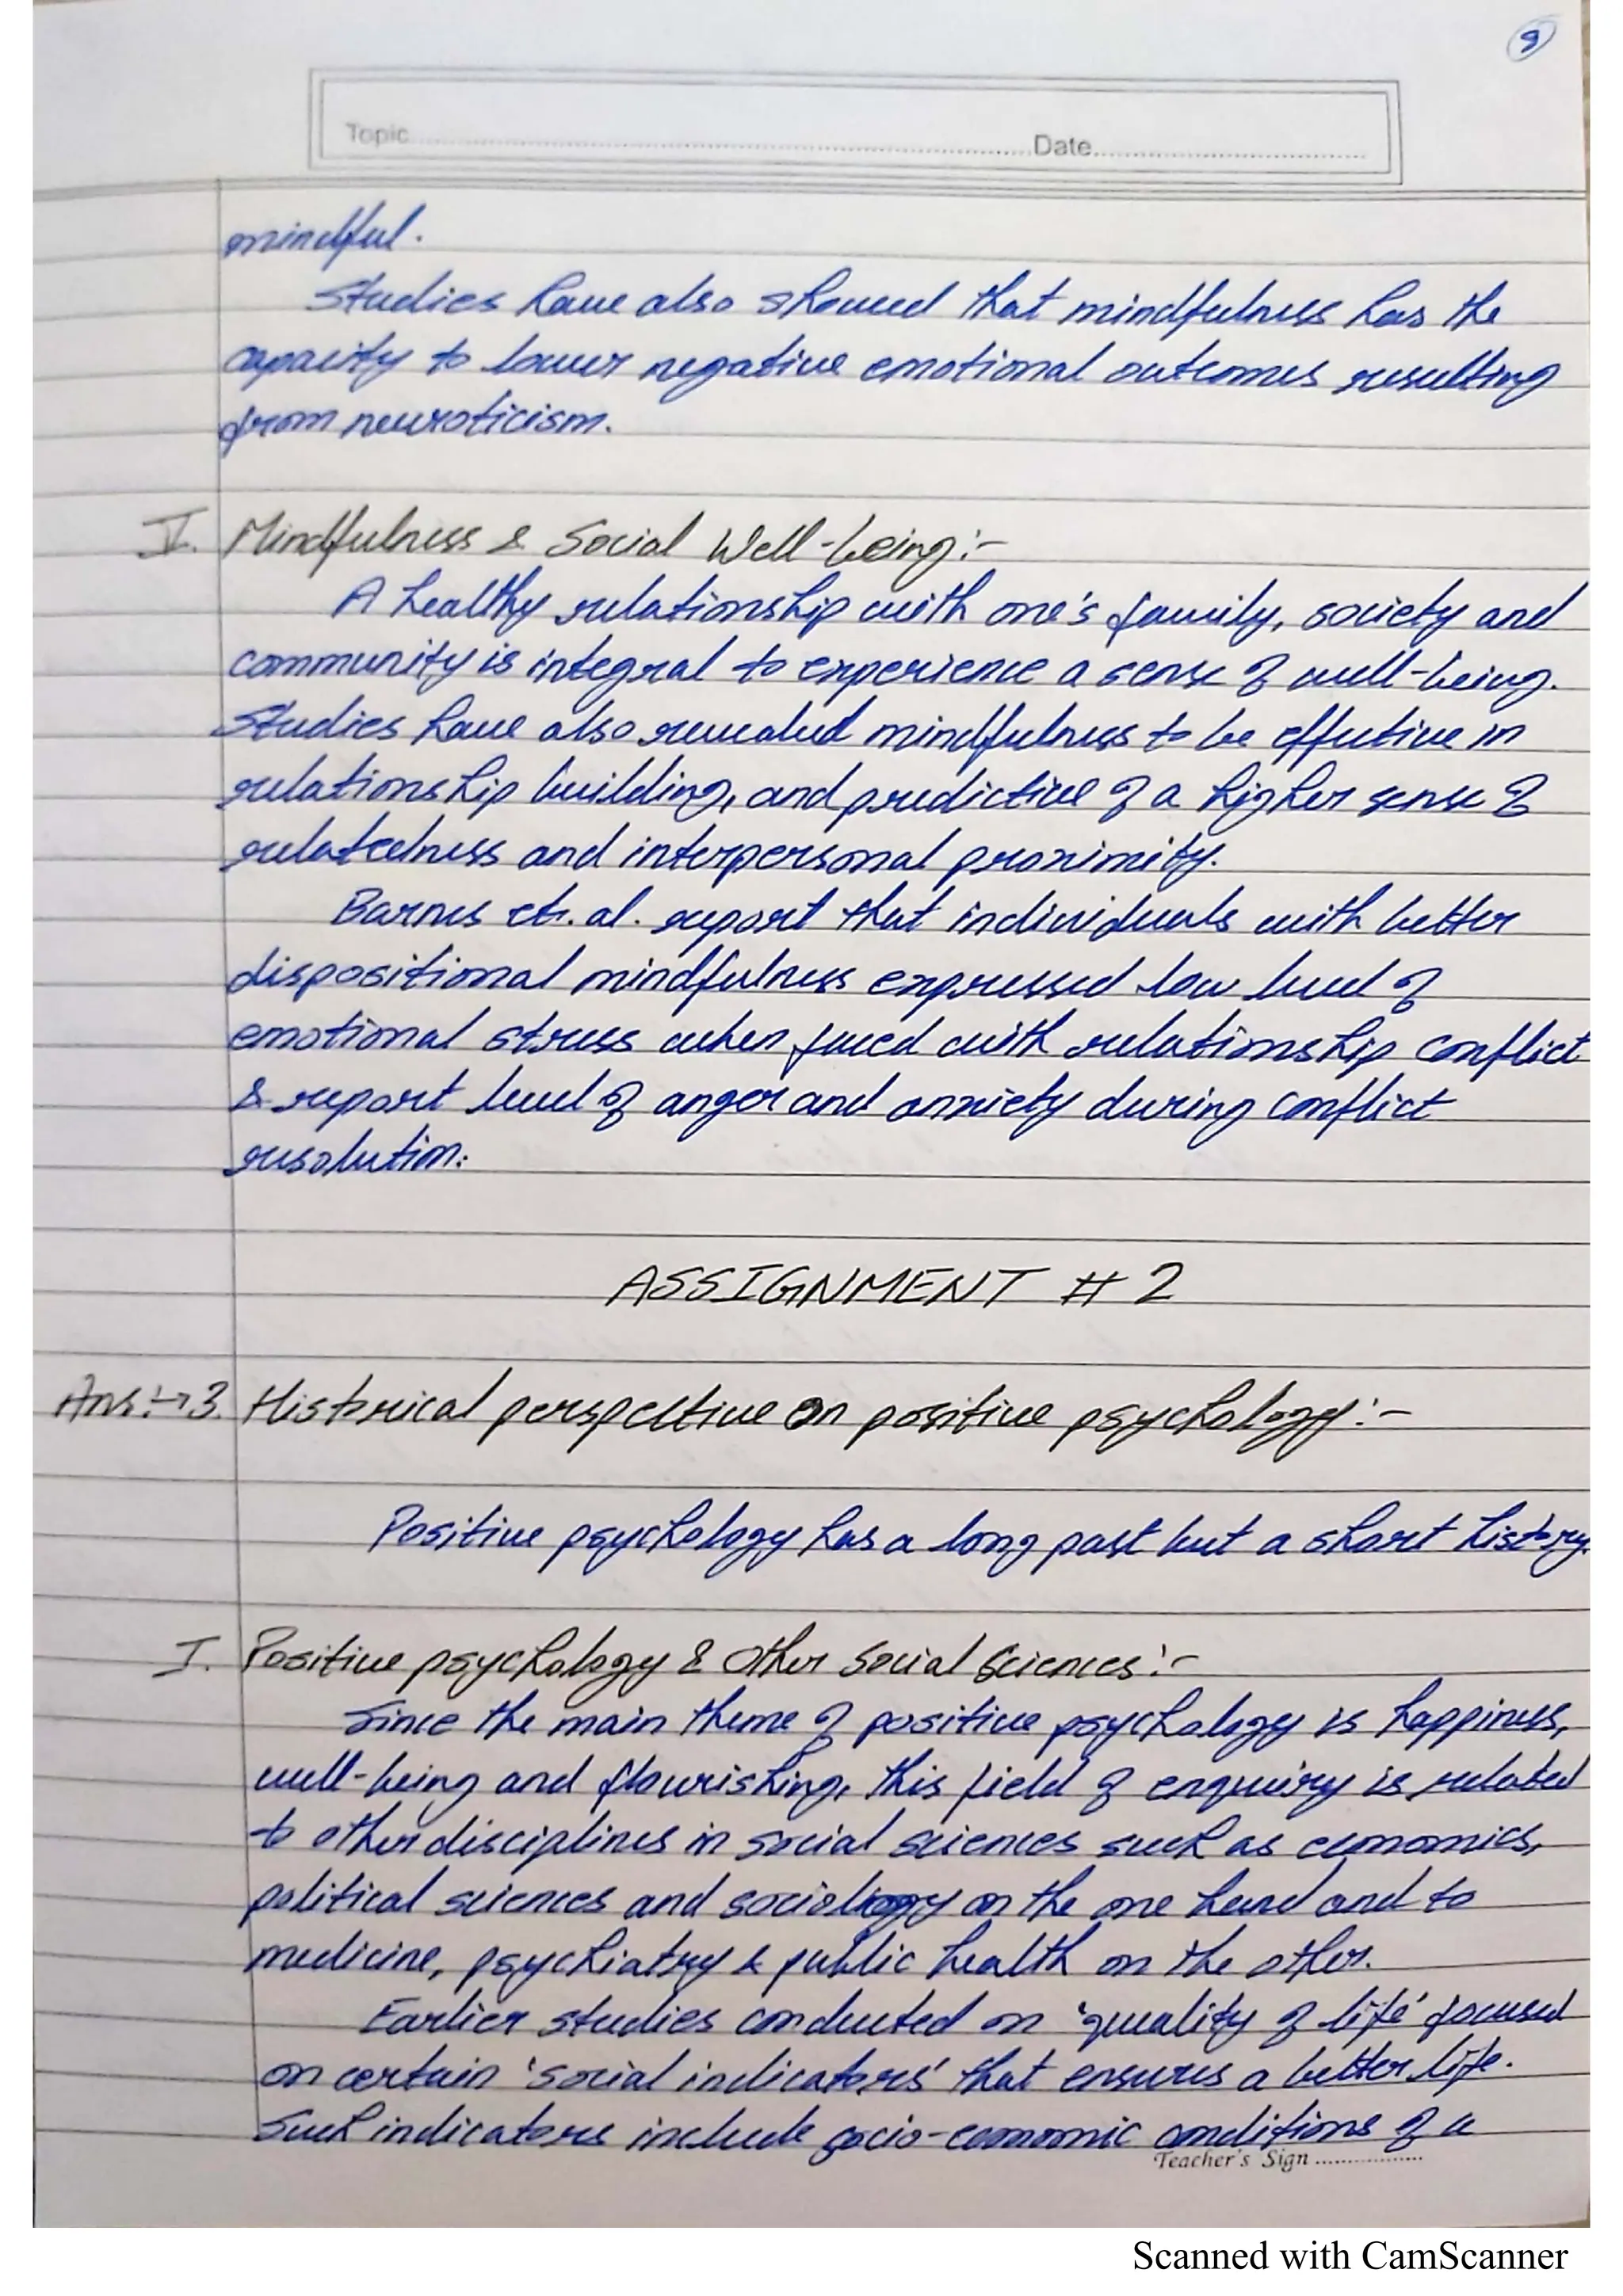 9
Topic
Date
mindful.
Studies have also showed that mindfulness has the
capacity to lower negative emotional outcomes resulting
from neuroticism.
V. Mindfulness & Social Well-being:-
A healthy relationship with one's family, society and
community is integral to experience a sense of well-being.
Studies have also revealed mindfulness to be effective in
relationship building, and predictive of a higher sense of
relatedness and interpersonal proximity.
Barnes et. al. report that individuals with better
dispositional mindfulness expressed low level of
emotional stress when faced with relationship conflict
& report level of anger and anxiety during conflict
resolution.
ASSIGNMENT # 2
Ans:→3. Historical perspective on positive psychology:-
Positive psychology has a long past but a short history.
I. Positive psychology & Other Social Sciences:-
Since the main theme of positive psychology is happiness,
well-being and flourishing, this field of enquiry is related
to other disciplines in social sciences such as economics,
political sciences and sociology on the one hand and to
medicine, psychiatry & public health on the other.
Earlier studies conducted on 'quality of life' focused
on certain 'social indicators' that ensures a better life.
Such indicators include socio-economic conditions of a
Teacher's Sign
Scanned with CamScanner